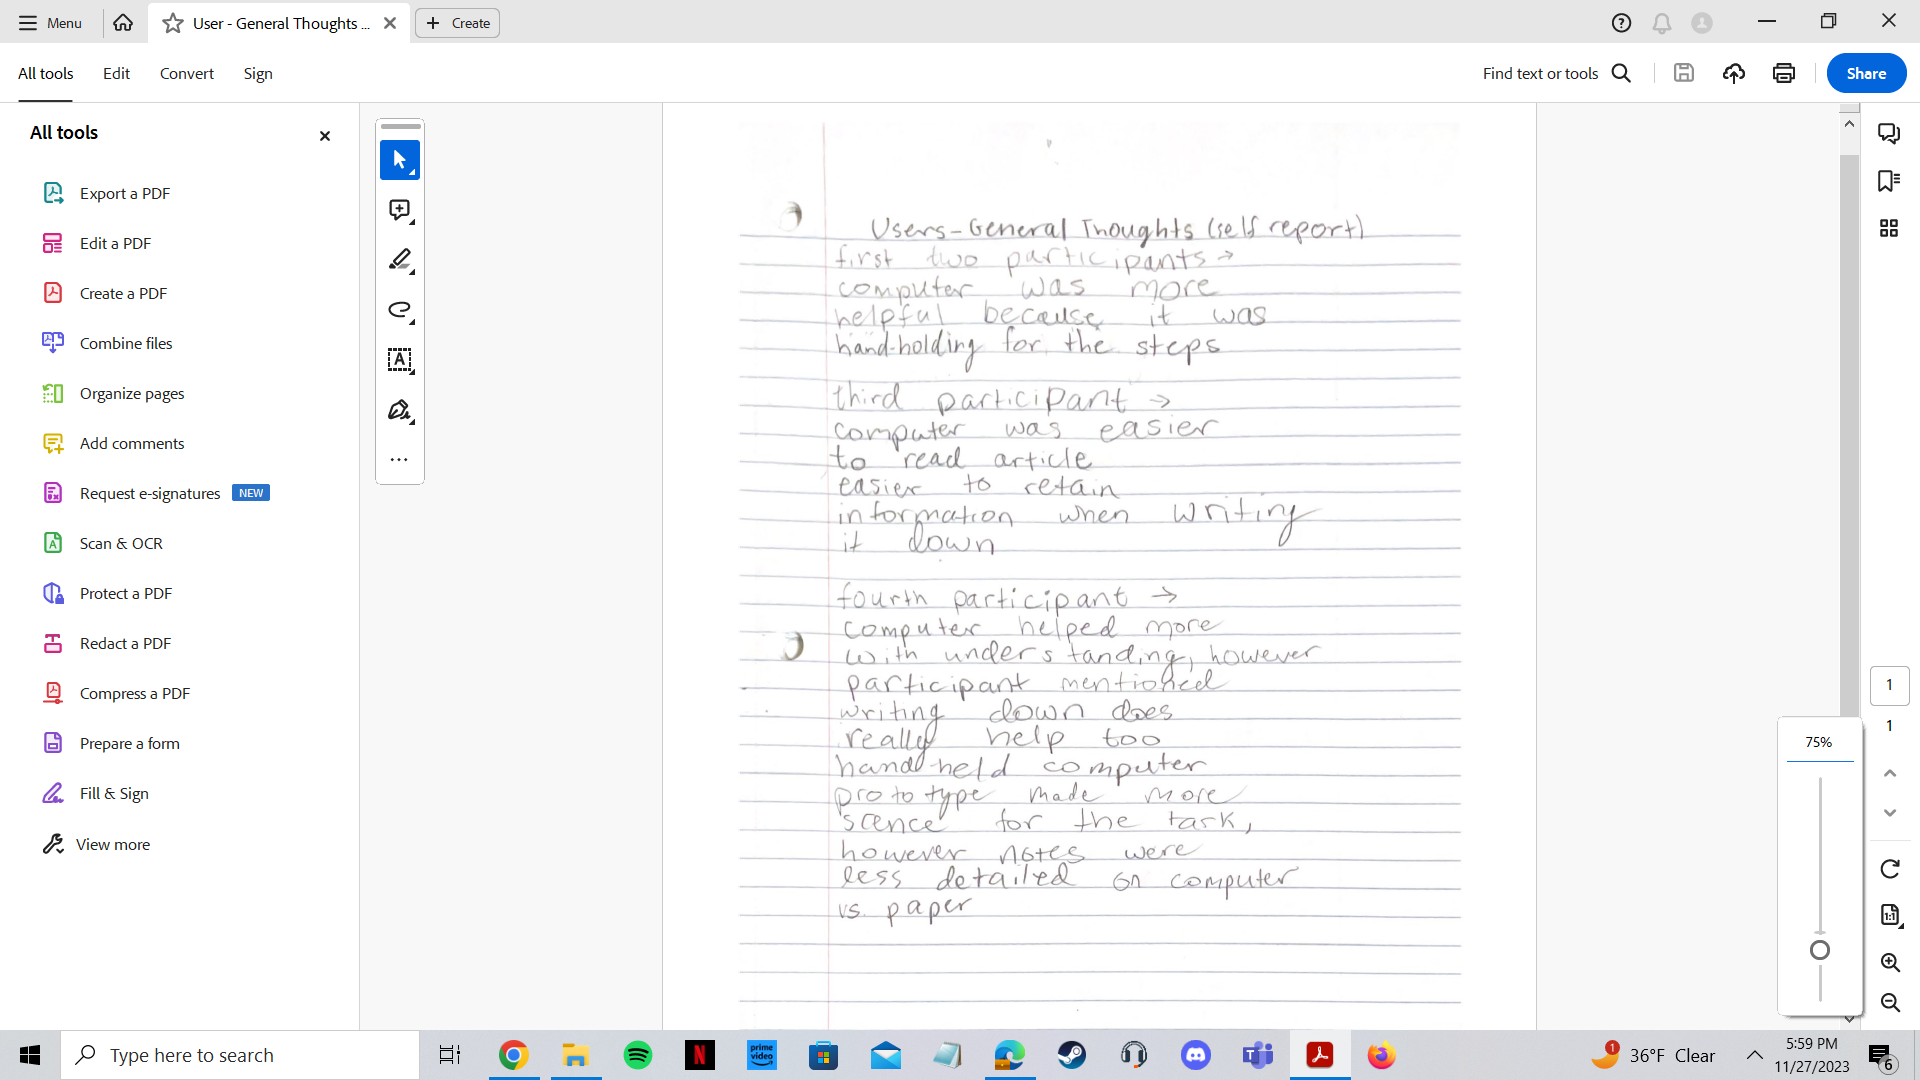 Menu
User - General Thoughts ...
Create
All tools
Edit
Convert
Sign
Find text or tools
Share
All tools
Export a PDF
Edit a PDF
Create a PDF
Combine files
Organize pages
Add comments
Request e-signatures NEW
Scan & OCR
Protect a PDF
Redact a PDF
Compress a PDF
Prepare a form
Fill & Sign
View more
Users-General Thoughts (self report)
first two participants →
computer was more
helpful because it was
hand-holding for the steps
third participant →
computer was easier
to read article
easier to retain
information when writing
it down
fourth participant →
computer helped more
with understanding, however
participant mentioned
writing down does
really help too
hand-held computer
prototype made more
scence for the task,
however notes were
less detailed on computer
vs. paper
1
1
75%
1:1
Type here to search
prime video
1
36°F Clear
5:59 PM
11/27/2023
6